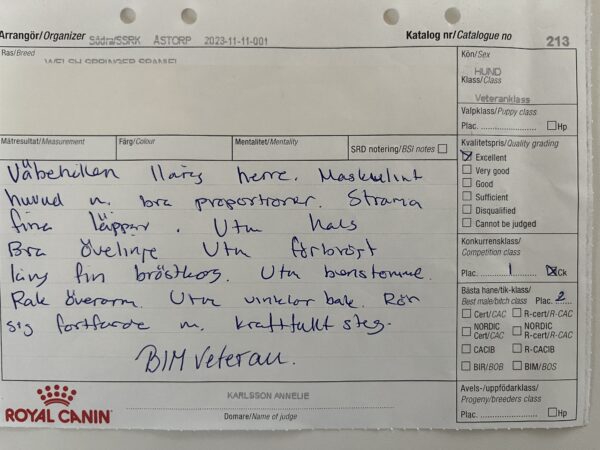 Arrangör/Organizer Södra/SSRK ÅSTORP 2023-11-11-001 Katalog nr/Catalogue no 213
Ras/Breed
WELSH SPRINGER SPANIEL
Kön/Sex
HUND
Klass/Class
Veteranklass
Valpklass/Puppy class
Plac. Hp
Mätresultat/Measurement Färg/Colour Mentalitet/Mentality SRD notering/BSI notes
Kvalitetspris/Quality grading
Excellent
Very good
Good
Sufficient
Disqualified
Cannot be judged
Välbehållen 11årig herre. Maskulint
huvud m. bra proportioner. Strama
fina läppar. Utm hals
Bra överlinje Utm förbröst
lång fin bröstkorg. Utm benstomme.
Rak överarm. Utm vinklar bak. Rör
sig fortfarande m. kraftfullt steg.
BIM Veteran.
Konkurrensklass/
Competition class
Plac. 1 Ck
Bästa hane/tik-klass/
Best male/bitch class Plac. 2
Cert/CAC R-cert/R-CAC
NORDIC Cert/CAC NORDIC R-Cert/R-CAC
CACIB R-CACIB
BIR/BOB BIM/BOS
Avels-/uppfödarklass/
Progeny/breeders class
Plac. Hp
ROYAL CANIN
KARLSSON ANNELIE
Domare/Name of judge